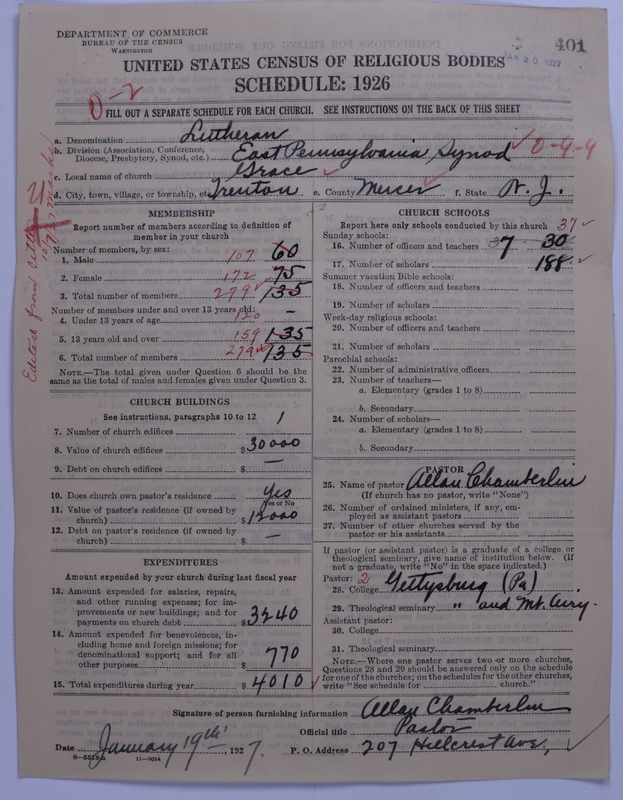 DEPARTMENT OF COMMERCE
BUREAU OF THE CENSUS
WASHINGTON
401
JAN 20 1927
UNITED STATES CENSUS OF RELIGIOUS BODIES
SCHEDULE: 1926
0-2
FILL OUT A SEPARATE SCHEDULE FOR EACH CHURCH. SEE INSTRUCTIONS ON THE BACK OF THIS SHEET
a. Denomination Lutheran
b. Division (Association, Conference, Diocese, Presbytery, Synod, etc.) East Pennsylvania Synod 0-9-9
c. Local name of church Grace
d. City, town, village, or township, etc. Trenton e. County Mercer f. State N. J.
Edited from letter
MEMBERSHIP
Report number of members according to definition of
member in your church
Number of members, by sex:
1. Male 107 60
2. Female 172 75
3. Total number of members 279 135
Number of members under and over 13 years old:
4. Under 13 years of age 120 —
5. 13 years old and over 159 135
6. Total number of members 279 135
NOTE.—The total given under Question 6 should be the
same as the total of males and females given under Question 3.
CHURCH BUILDINGS
See instructions, paragraphs 10 to 12
7. Number of church edifices 1
8. Value of church edifices $ 30000
9. Debt on church edifices $ —
10. Does church own pastor's residence Yes
Yes or No
11. Value of pastor's residence (if owned by
church) $ 12000
12. Debt on pastor's residence (if owned by
church) $ —
EXPENDITURES
Amount expended by your church during last fiscal year
13. Amount expended for salaries, repairs,
and other running expenses; for im-
provements or new buildings; and for
payments on church debt $ 3240
14. Amount expended for benevolences, in-
cluding home and foreign missions; for
denominational support; and for all
other purposes $ 770
15. Total expenditures during year $ 4010
CHURCH SCHOOLS
Report here only schools conducted by this church 37
Sunday schools:
16. Number of officers and teachers 37 30
17. Number of scholars 188
Summer vacation Bible schools:
18. Number of officers and teachers
19. Number of scholars
Week-day religious schools:
20. Number of officers and teachers
21. Number of scholars
Parochial schools:
22. Number of administrative officers
23. Number of teachers—
a. Elementary (grades 1 to 8)
b. Secondary
24. Number of scholars—
a. Elementary (grades 1 to 8)
b. Secondary
PASTOR
25. Name of pastor Allan Chamberlin
(If church has no pastor, write "None")
26. Number of ordained ministers, if any, em-
ployed as assistant pastors
27. Number of other churches served by the
pastor or his assistants
If pastor (or assistant pastor) is a graduate of a college or
theological seminary, give name of institution below. (If
not a graduate, write "No" in the space indicated.)
Pastor: 2
28. College Gettysburg (Pa)
29. Theological seminary " and Mt. Airy.
Assistant pastor:
30. College
31. Theological seminary
NOTE.—Where one pastor serves two or more churches,
Questions 28 and 29 should be answered only on the schedule
for one of the churches; on the schedules for the other churches,
write "See schedule for church."
Signature of person furnishing information Allan Chamberlin
Official title Pastor
Date January 19th 1927. P. O. Address 207 Hillcrest Ave,
11-9054